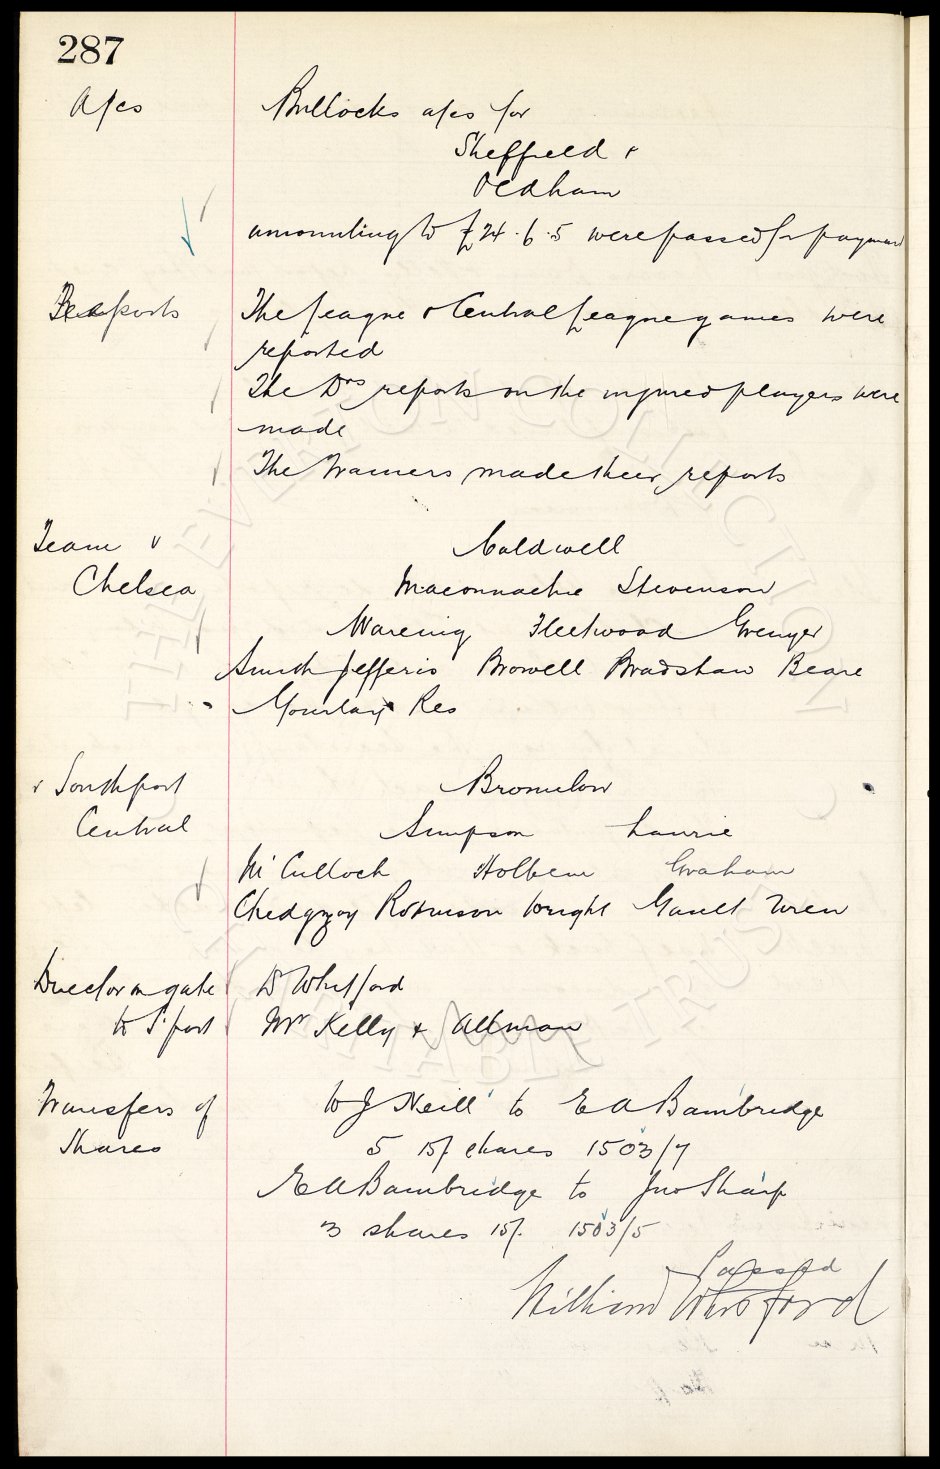 287
A/cs
Bullocks a/cs for
Sheffield &
Oldham
amounting to £24.6.5 were passed for payment
Reports
The League & Central League games were
reported
The Drs reports on the injured players were
made
The Trainers made their reports
Team v
Chelsea
Caldwell
Maconnachie Stevenson
Wareing Fleetwood Grenyer
Smith Jefferis Browell Bradshaw Beare
Gourlay Res
v Southport
Central
Bromilow
Simpson Laurie
McCulloch Holbem Graham
Chedgzoy Robinson Wright Gault Wren
Director on gate
Dr Whitford
to S'port
Mr Kelly & Allman
Transfers of
Shares
W J Neill to E A Bambridge
5 15/ shares 1503/7
E A Bambridge to Jno Sharp
3 shares 15/. 1503/5
Passed
William Whitford
THE EVERTON COLLECTION
CHARITABLE TRUST